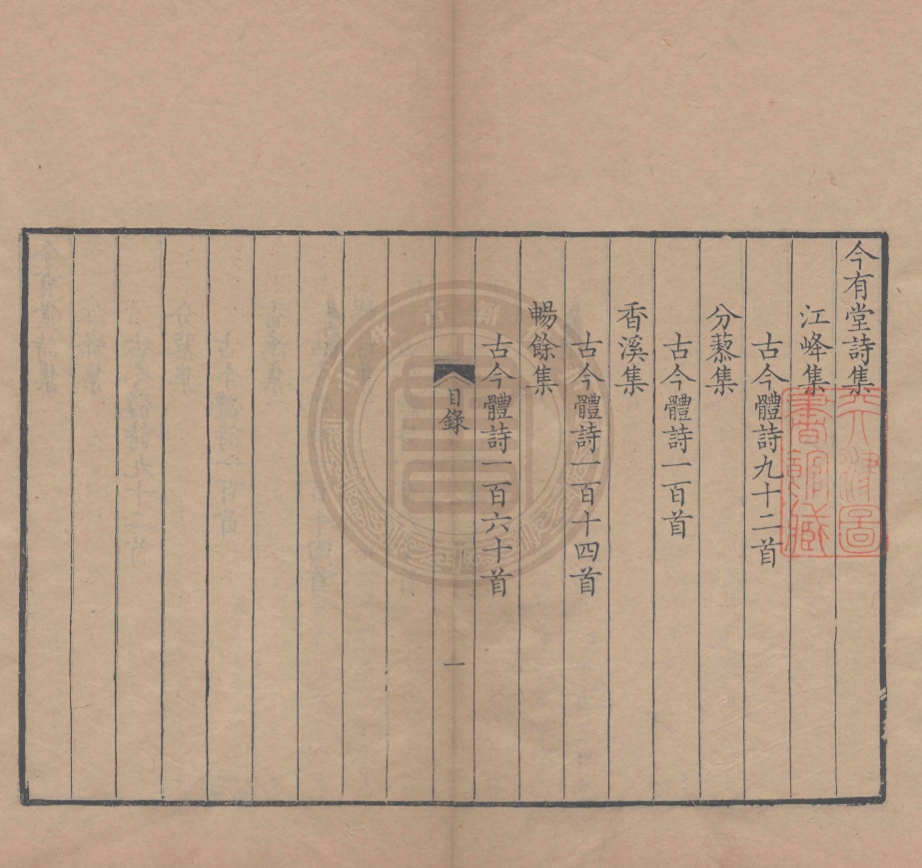 今有堂詩集
江峰集
古今體詩九十二首
分藜集
古今體詩一百首
香溪集
古今體詩一百十四首
暢餘集
古今體詩一百六十首
目錄
一
天津圖
書館藏